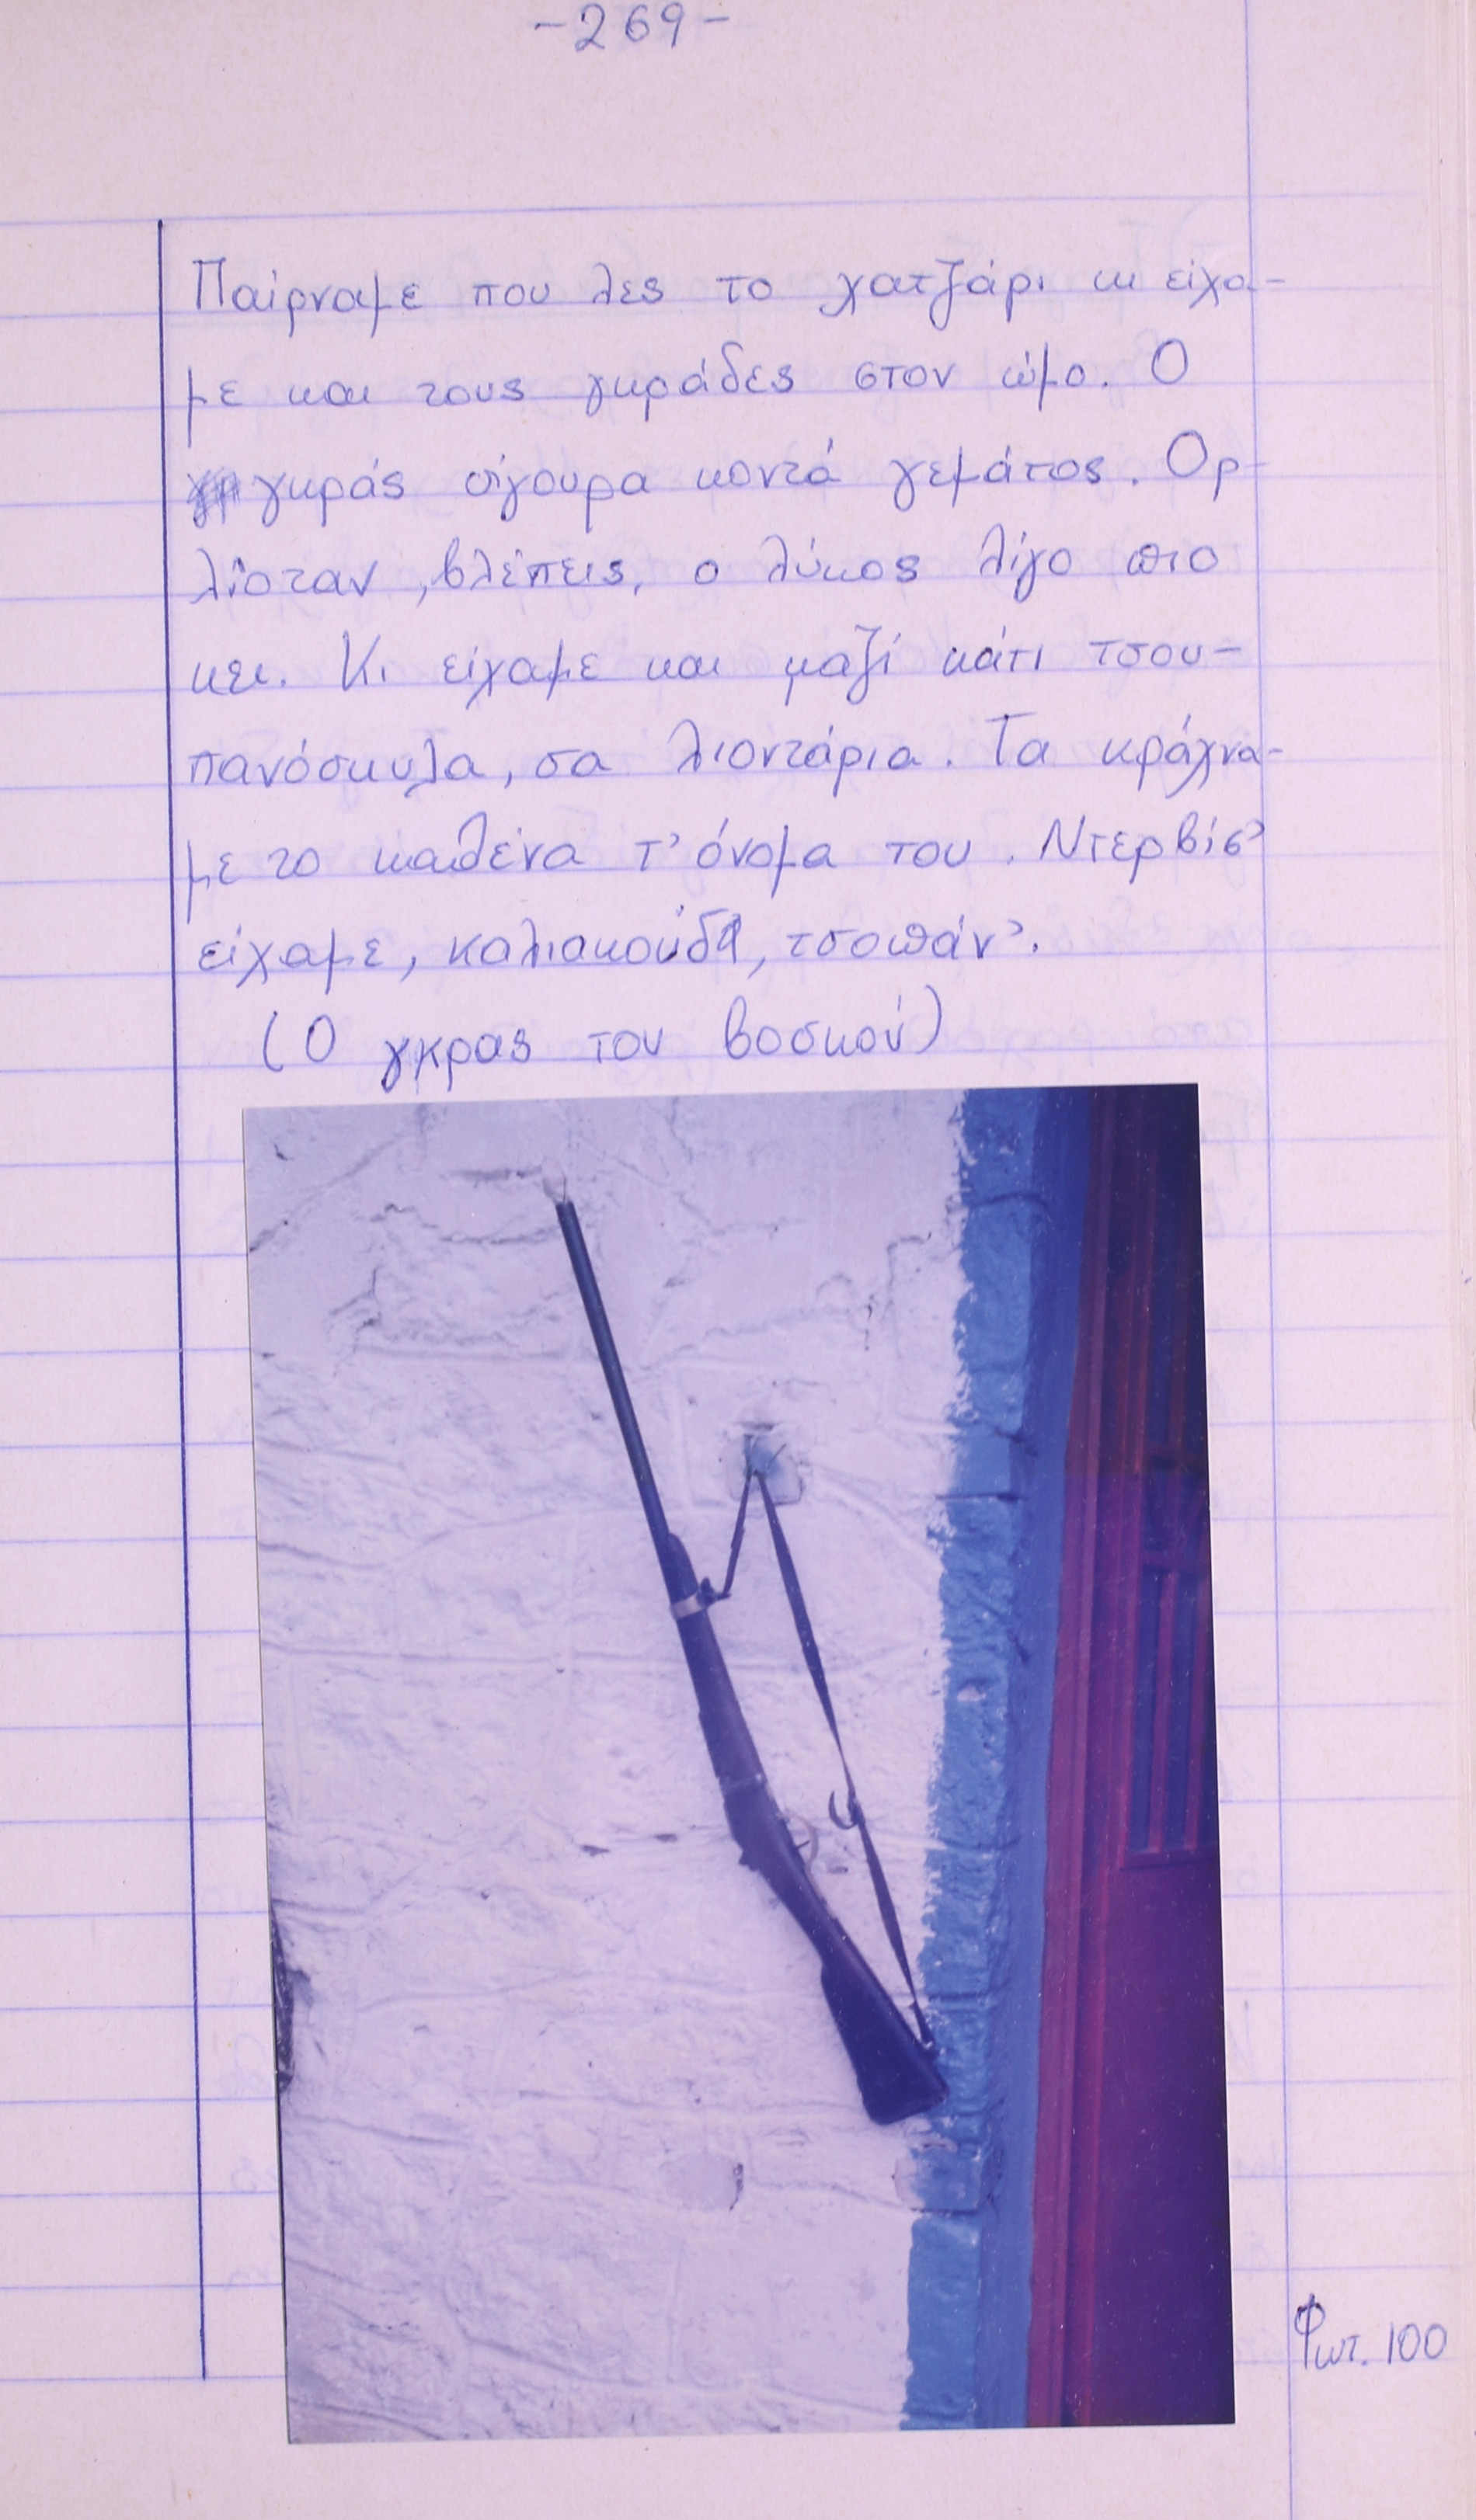 -269-
Παίρναμε που λες το χατζάρι κι είχα-
με και τους γκράδες στον ώμο. Ο
γκράς σίγουρα κοντά γεμάτος. Ορ-
λιόταν, βλέπεις, ο λύκος λίγο πιο
κει. Κι είχαμε και μαζί κάτι τσου-
πανόσκυλα, σα λιοντάρια. Τα κράχνα-
με το καθένα τ' όνομα του. Ντερβίσ'
είχαμε, καλιακούδα, τσοπάν'.
(Ο γκρας του βοσκού)
Φωτ. 100